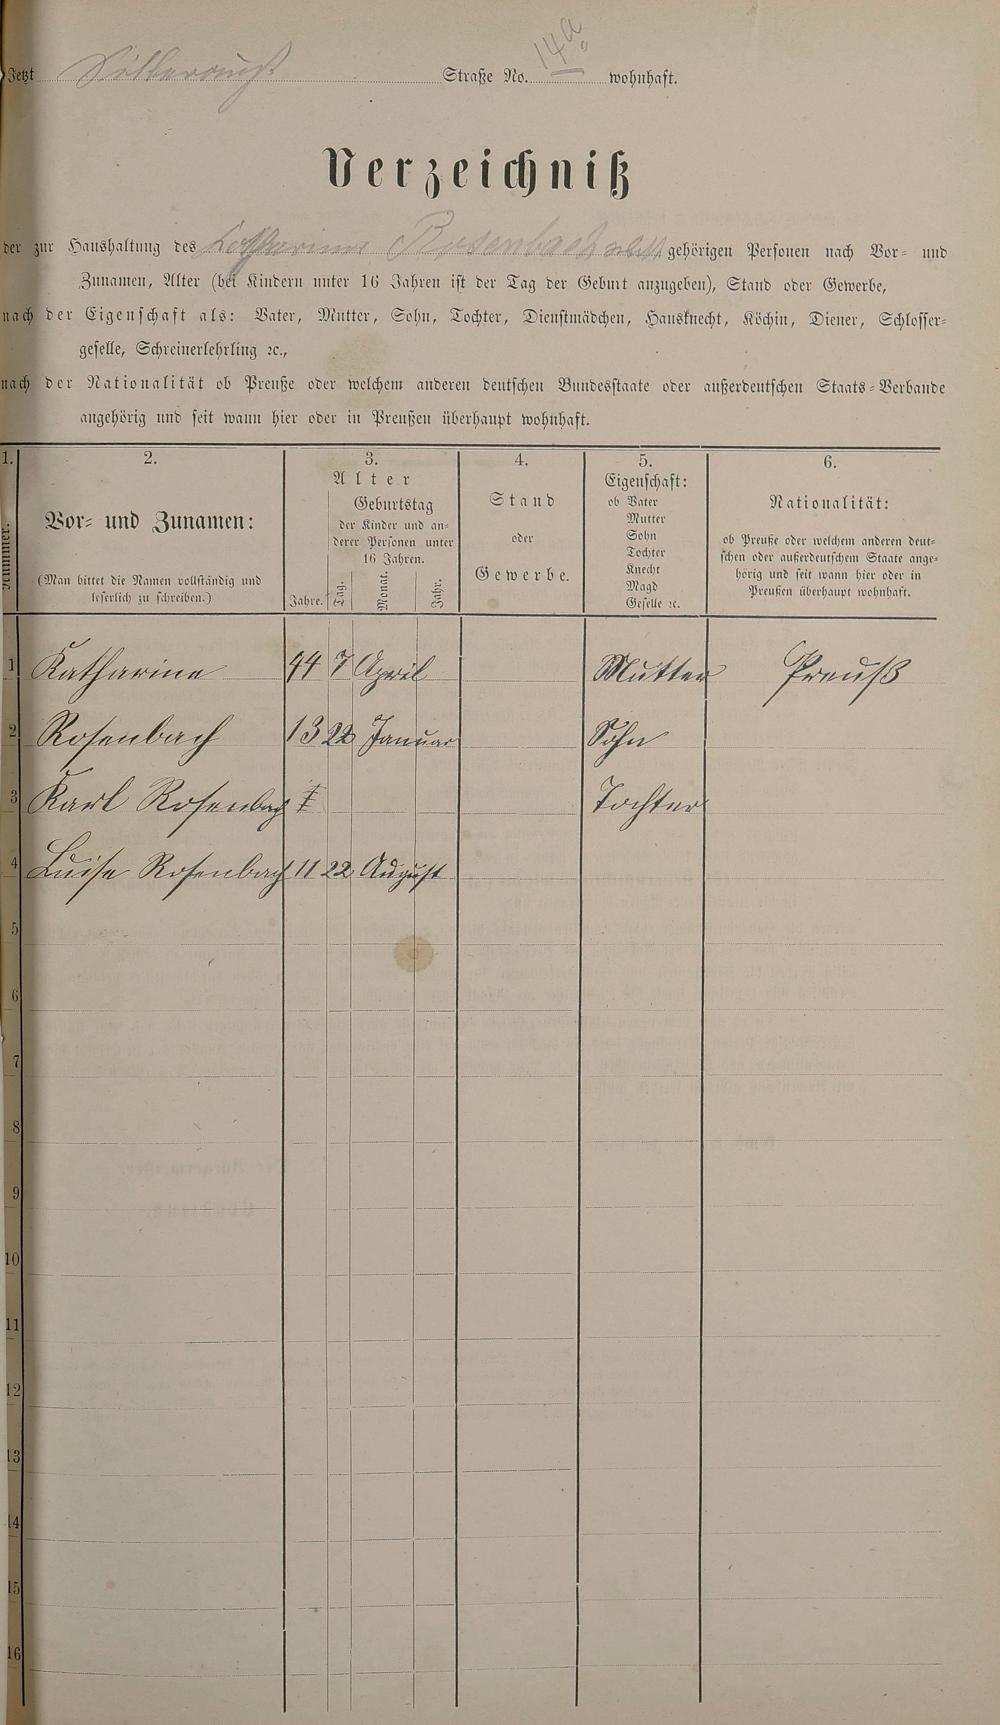 Jetzt Straße No. 14a wohnhaft.
Verzeichniß
der zur Haushaltung des Catharina Rosenbach gehörigen Personen nach Vor- und
Zunamen, Alter (bei Kindern unter 16 Jahren ist der Tag der Geburt anzugeben), Stand oder Gewerbe,
nach der Eigenschaft als: Vater, Mutter, Sohn, Tochter, Dienstmädchen, Hausknecht, Köchin, Diener, Schlosser-
geselle, Schreinerlehrling ꝛc.,
nach der Nationalität ob Preuße oder welchem anderen deutschen Bundesstaate oder außerdeutschen Staats-Verbande
angehörig und seit wann hier oder in Preußen überhaupt wohnhaft.
1. 2. 3. 4. 5. 6.
Nummer.
Vor- und Zunamen:
(Man bittet die Namen vollständig und
leserlich zu schreiben.)
Alter
Geburtstag
der Kinder und an-
derer Personen unter
16 Jahren.
Jahre. Tag. Monat. Jahr.
Stand
oder
Gewerbe.
Eigenschaft:
ob Vater
Mutter
Sohn
Tochter
Knecht
Magd
Geselle ꝛc.
Nationalität:
ob Preuße oder welchem anderen deut-
schen oder außerdeutschem Staate ange-
hörig und seit wann hier oder in
Preußen überhaupt wohnhaft.
1 Katharine 44 7 April Mutter Preuß
2 Rosenbach 13 22 Januar Sohn
3 Karl Rosenbach Tochter
4 Luise Rosenbach 11 22 August
5
6
7
8
9
10
11
12
13
14
15
16